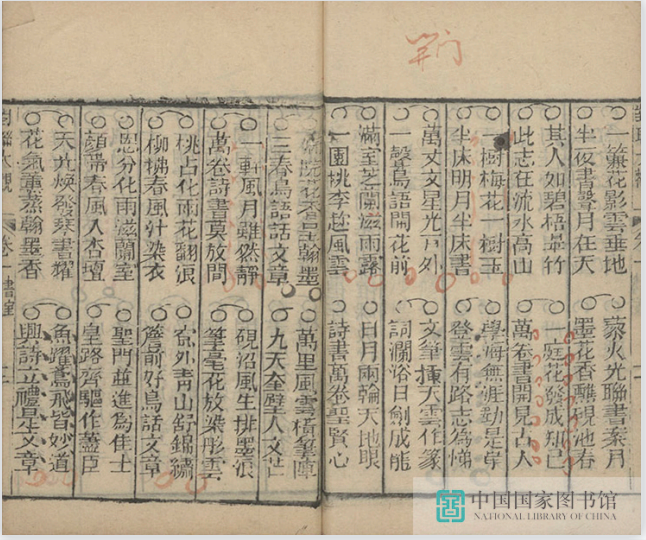 荆门
一簾花影雲垂地　藜火光聯書案月
半夜書聲月在天　墨花香醮硯池春
其人如碧梧翠竹　一庭花發成知己
此志在流水高山　萬卷書開見古人
一樹梅花一樹玉　學海無涯勤是岸
半床明月半床書　登雲有路志為梯
萬丈文星光戶外　文筆揮天雲作篆
一聲鳥語開花前　詞瀾浴日劍成龍
滿室芝蘭滋雨露　日月兩輪天地眼
一園桃李趁風雲　詩書萬卷聖賢心
花香呈翰墨　萬里風雲橫筆陣
三春鳥語話文章　九天奎壁人文
一軒風月雖然靜　硯沼風生排墨浪
萬卷詩書莫放閒　筆毫花放染彤雲
桃占化雨花翻浪　窓外青山舒錦繡
柳拂春風汁染衣　簷前好鳥話文章
熙分化雨滋蘭室　聖門並進為佳士
顔帶春風入杏壇　皇路齊驅作藎臣
天光煥發琴書耀　魚躍鳶飛皆妙道
花氣薰蒸翰墨香　興詩立禮是文章
對聯大觀　卷一　書室
中国国家图书馆
NATIONAL LIBRARY OF CHINA